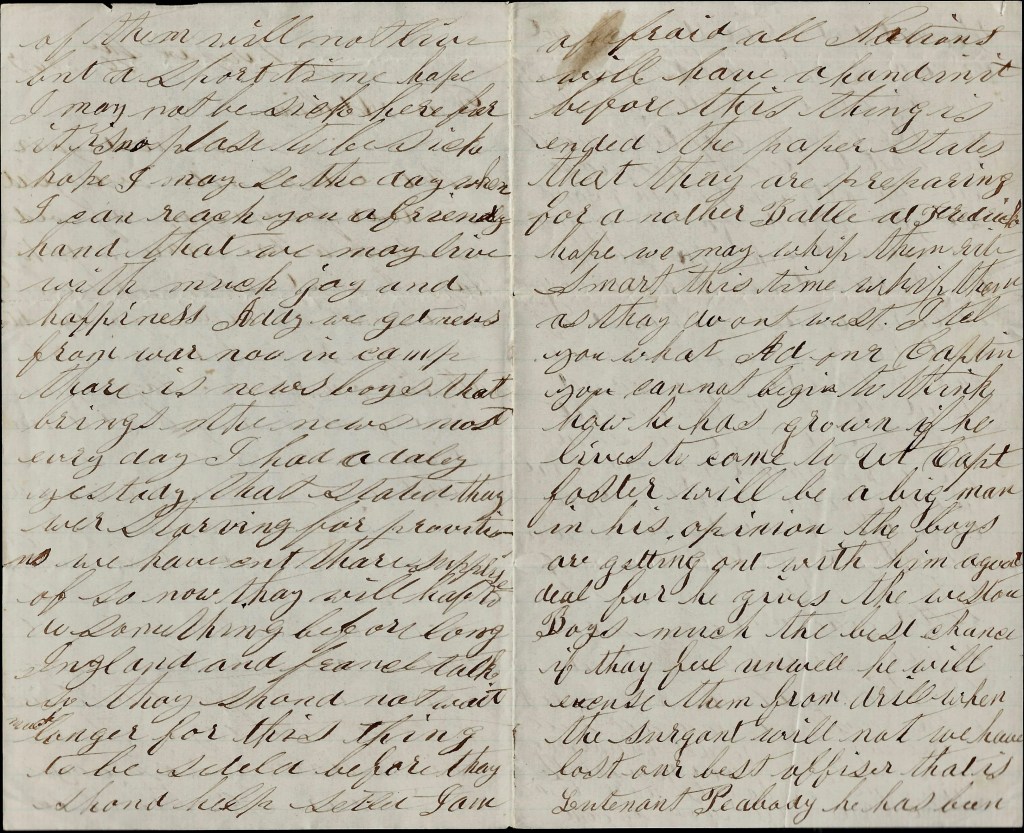 of them will not live
but a short time hope
I may not be sick here for
it is no plase to be sick
hope I may se the day when
I can reach you a friendly
hand that we may live
with much joy and
happiness Addy we get news
from war now in camp
thare is news boys that
brings the news most
every day I had a daley
yestady that stated thay
wer starving for provition
we have cut thare supplise
of so now thay will hap to
do something before long
England and france talk
so thay shond not wait
much
longer for this thing
to be seteld before thay
shond help setle I am
affraid all Nations
will have a hand in it
before this thing is
ended the paper states
that thay are preparing
for a nother Battle at
hope we may whip them
smart this time whip them
as thay do out west. I tel
you what Ad our Captin
you can not begin to think
how he has grown if he
lives to come to Vt, Capt
foster will be a big man
in his opinion the boys
are getting out with him a good
deal for he gives the weston
Boys much the best chance
if thay feel unwell he will
excuse them from drill when
the surgant will not we have
lost our best offiser that is
Leutenant Peabody he has been